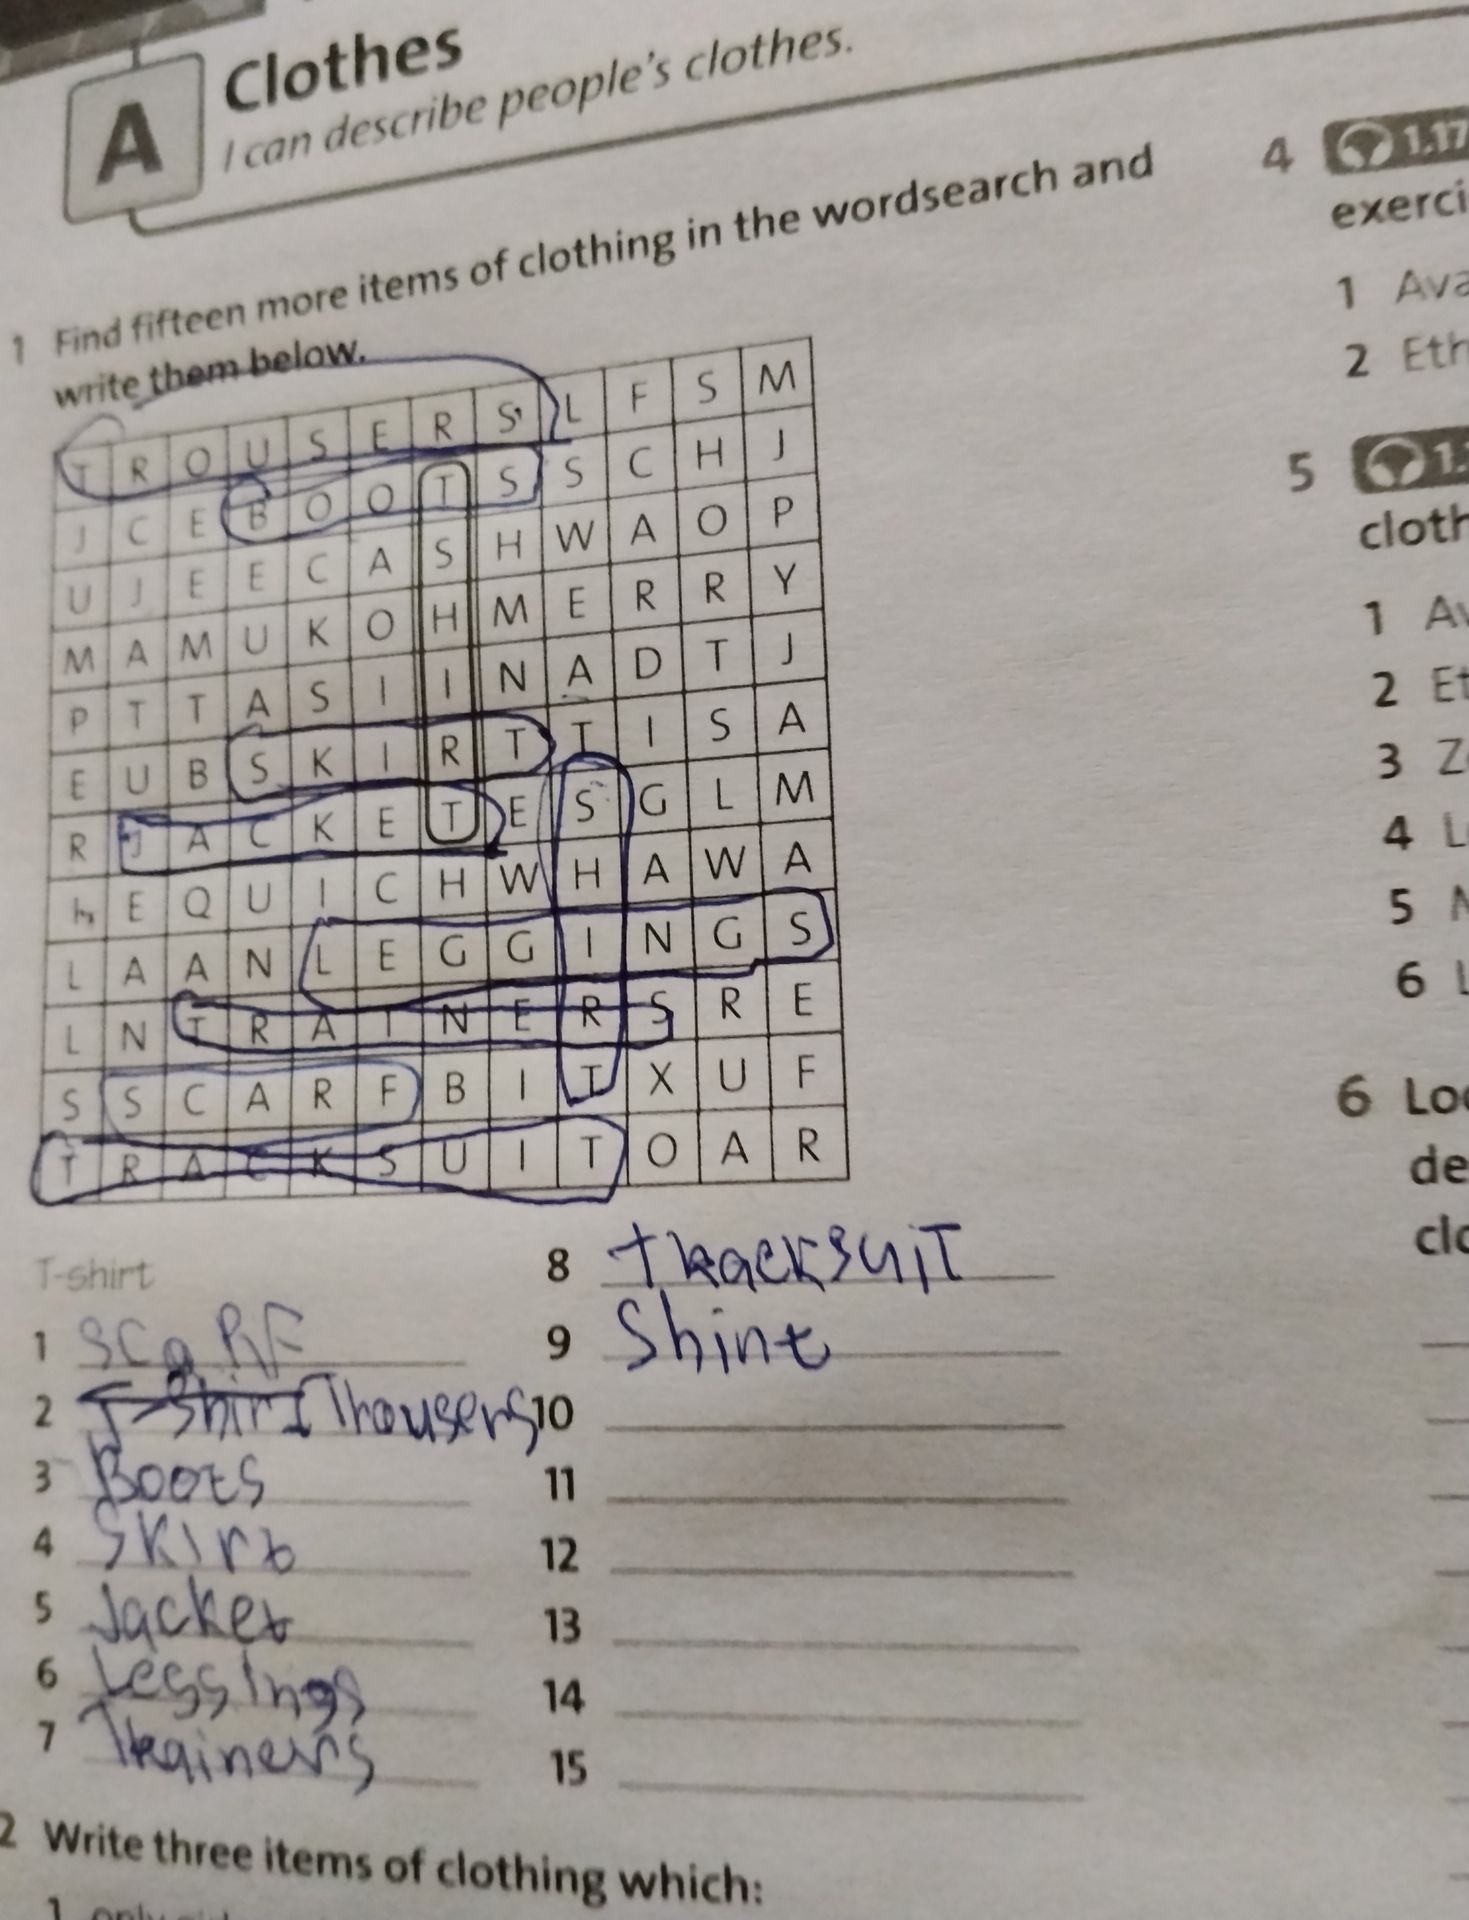 A
Clothes
I can describe people's clothes.
1 Find fifteen more items of clothing in the wordsearch and
write them below.
T R O U S E R S L F S M
J C E B O O T S S C H J
U J E E C A S H W A O P
M A M U K O H M E R R Y
P T T A S I I N A D T J
E U B S K I R T T I S A
R J A C K E T E S G L M
E Q U I C H W H A W A
L A A N L E G G I N G S
L N T R A I N E R S R E
S S C A R F B I T X U F
T R A C K S U I T O A R
T-shirt
1 SCaRF
2 T-shirt Trousers
3 Boots
4 Skirt
5 Jacket
6 Leggings
7 Trainers
8 tracksuit
9 Shirt
10
11
12
13
14
15
2 Write three items of clothing which:
1 only
4 1.17
exerci
1 Ava
2 Eth
5
cloth
1 Av
2 Et
3 Z
4 L
5
6 L
6 Loo
de
clo